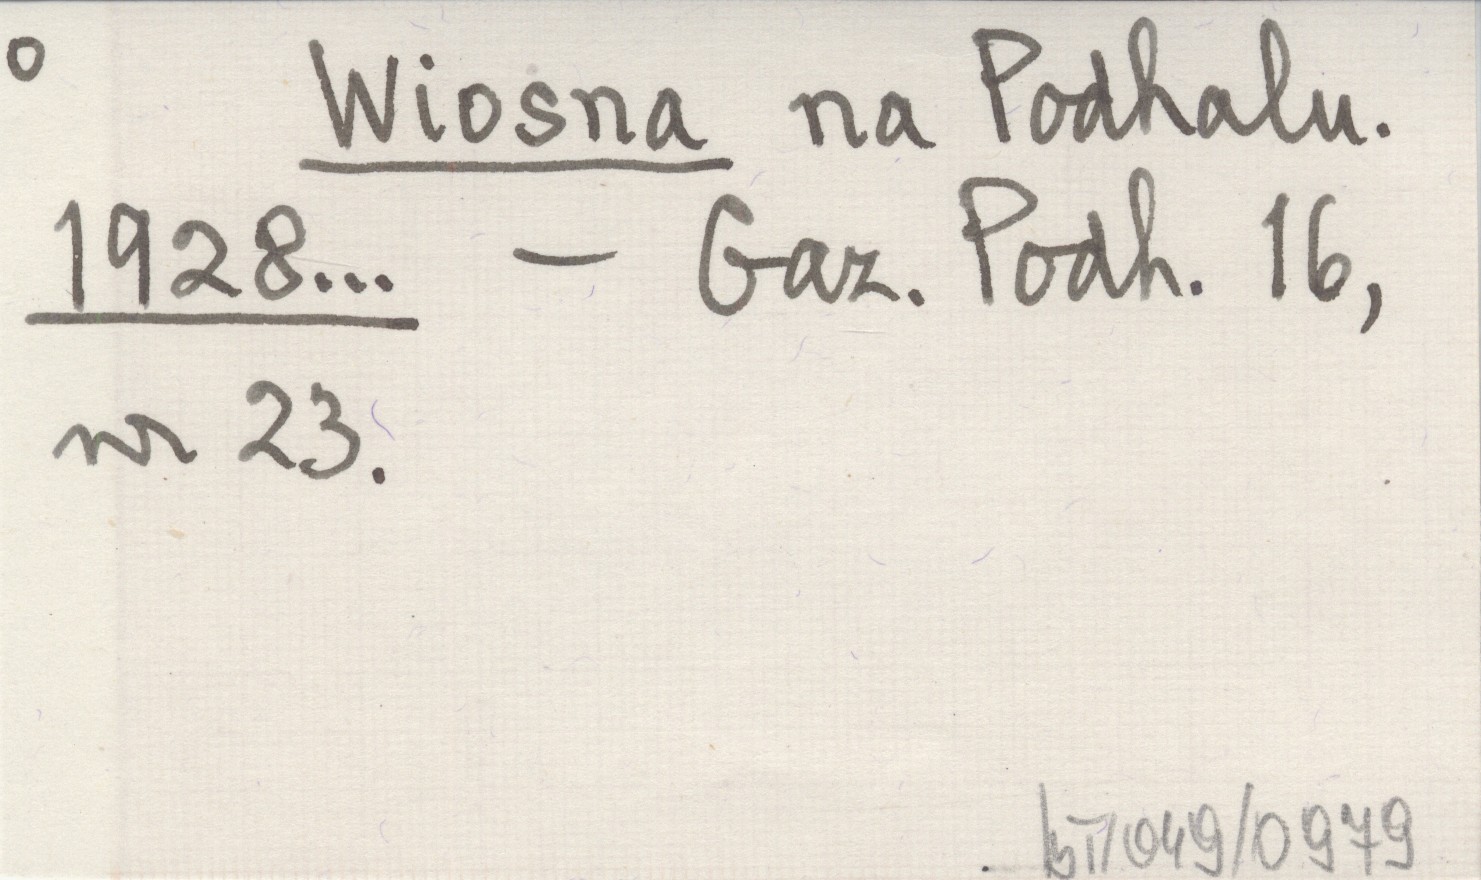 o Wiosna na Podhalu.
1928... – Gaz. Podh. 16,
nr 23.
bT/049/0979